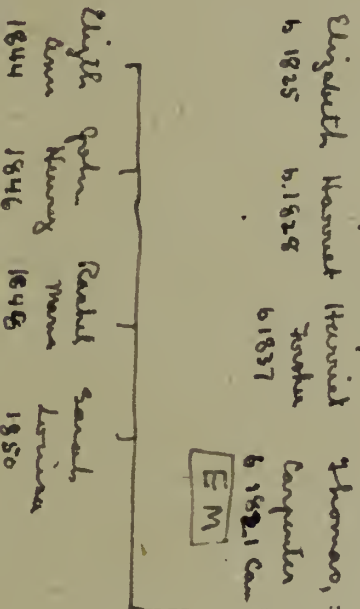 Elizabeth
b 1825
Harriet
b. 1828
Harriet
b 1837
Thomas, =
Carpenter
b 1821 Cam
EM
Elizth
Ann
1844
John
Henry
1846
Rachel
Maria
1848
Sarah
Louisa
1850